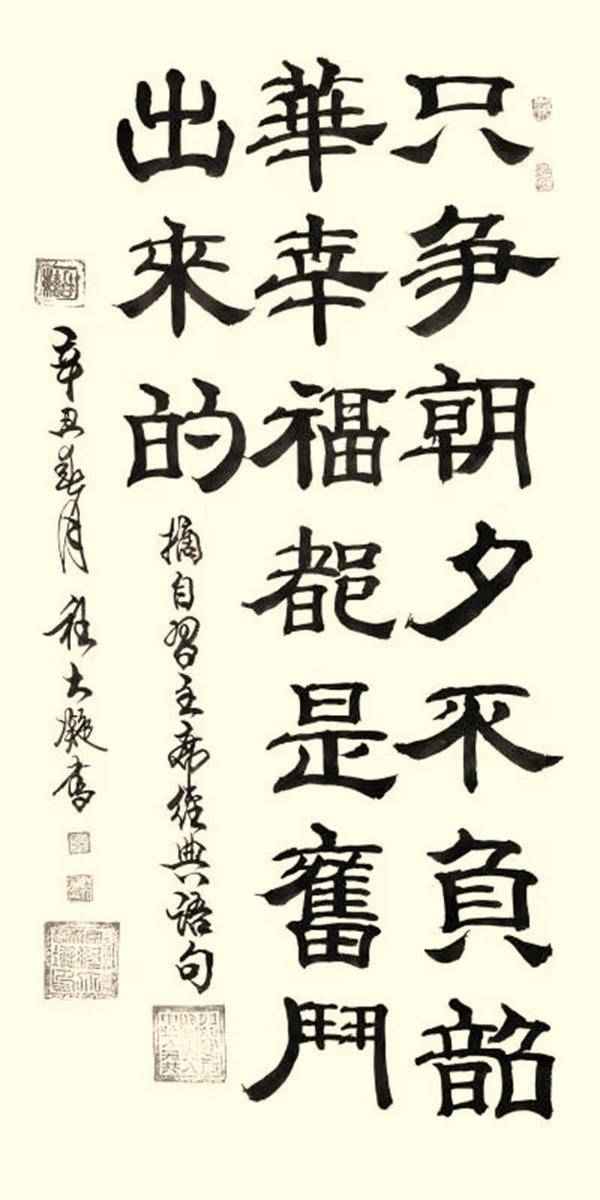 只争朝夕不負韶
華幸福都是奮鬥
出來的
摘自習主席經典語句
辛丑春月 大書